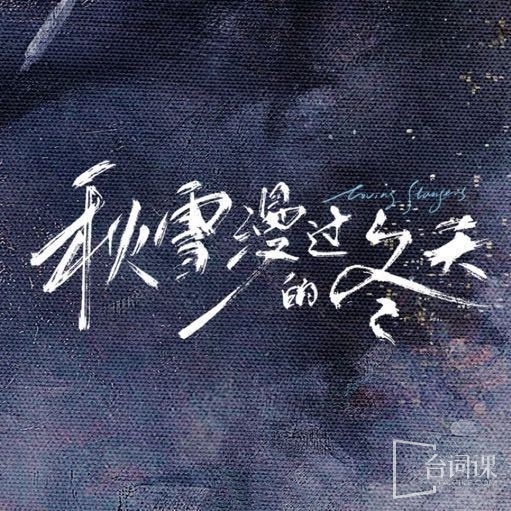 Loving Strangers
秋雪漫过的冬天
台词课